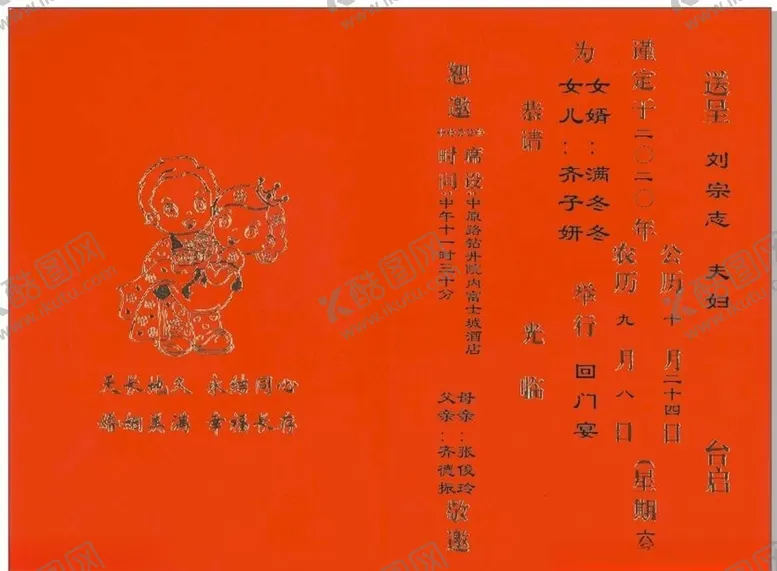 送呈 刘宗志 夫妇 台启
谨定于二〇二〇年
公历 十 月二十四日
农历 九 月 八 日
(星期六
为
女婿：满冬冬
女儿：齐子妍
举行 回门宴
恭请
光临
恕邀
席设：中原路钻井院内富士城酒店
时间：中午十一时三十分
母亲：张俊玲
父亲：齐德振
敬邀
天长地久 永结同心
婚姻美满 幸福长存
酷图网
www.ikutu.com